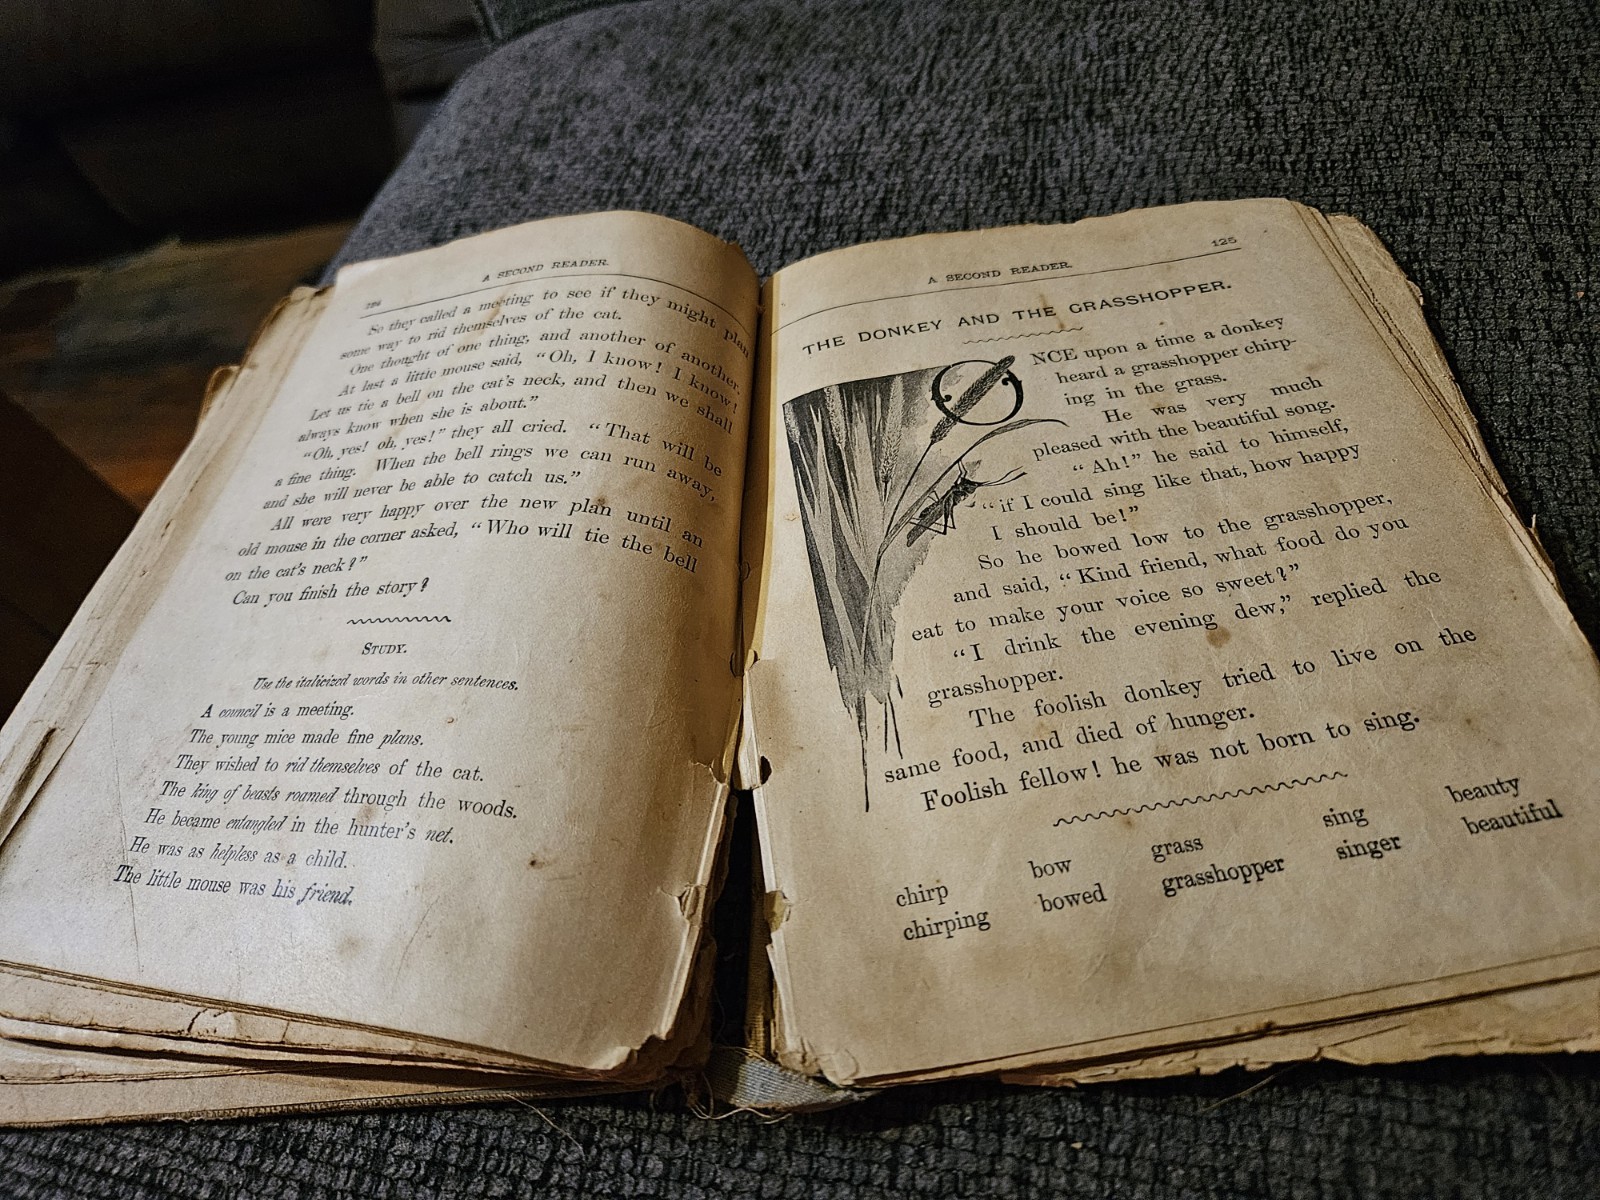 124
A SECOND READER.
So they called a meeting to see if they might plan
some way to rid themselves of the cat.
One thought of one thing, and another of another.
At last a little mouse said, “Oh, I know! I know!
Let us tie a bell on the cat's neck, and then we shall
always know when she is about.”
“Oh, yes! oh, yes!” they all cried. “That will be
a fine thing. When the bell rings we can run away,
and she will never be able to catch us.”
All were very happy over the new plan until an
old mouse in the corner asked, “Who will tie the bell
on the cat's neck?”
Can you finish the story?
STUDY.
Use the italicized words in other sentences.
A council is a meeting.
The young mice made fine plans.
They wished to rid themselves of the cat.
The king of beasts roamed through the woods.
He became entangled in the hunter's net.
He was as helpless as a child.
The little mouse was his friend.
A SECOND READER.
125
THE DONKEY AND THE GRASSHOPPER.
ONCE upon a time a donkey
heard a grasshopper chirp-
ing in the grass.
He was very much
pleased with the beautiful song.
“Ah!” he said to himself,
“if I could sing like that, how happy
I should be!”
So he bowed low to the grasshopper,
and said, “Kind friend, what food do you
eat to make your voice so sweet?”
“I drink the evening dew,” replied the
grasshopper.
The foolish donkey tried to live on the
same food, and died of hunger.
Foolish fellow! he was not born to sing.
chirp bow grass sing beauty
chirping bowed grasshopper singer beautiful